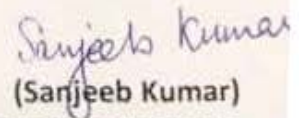 Sanjeeb Kumar
(Sanjeeb Kumar)